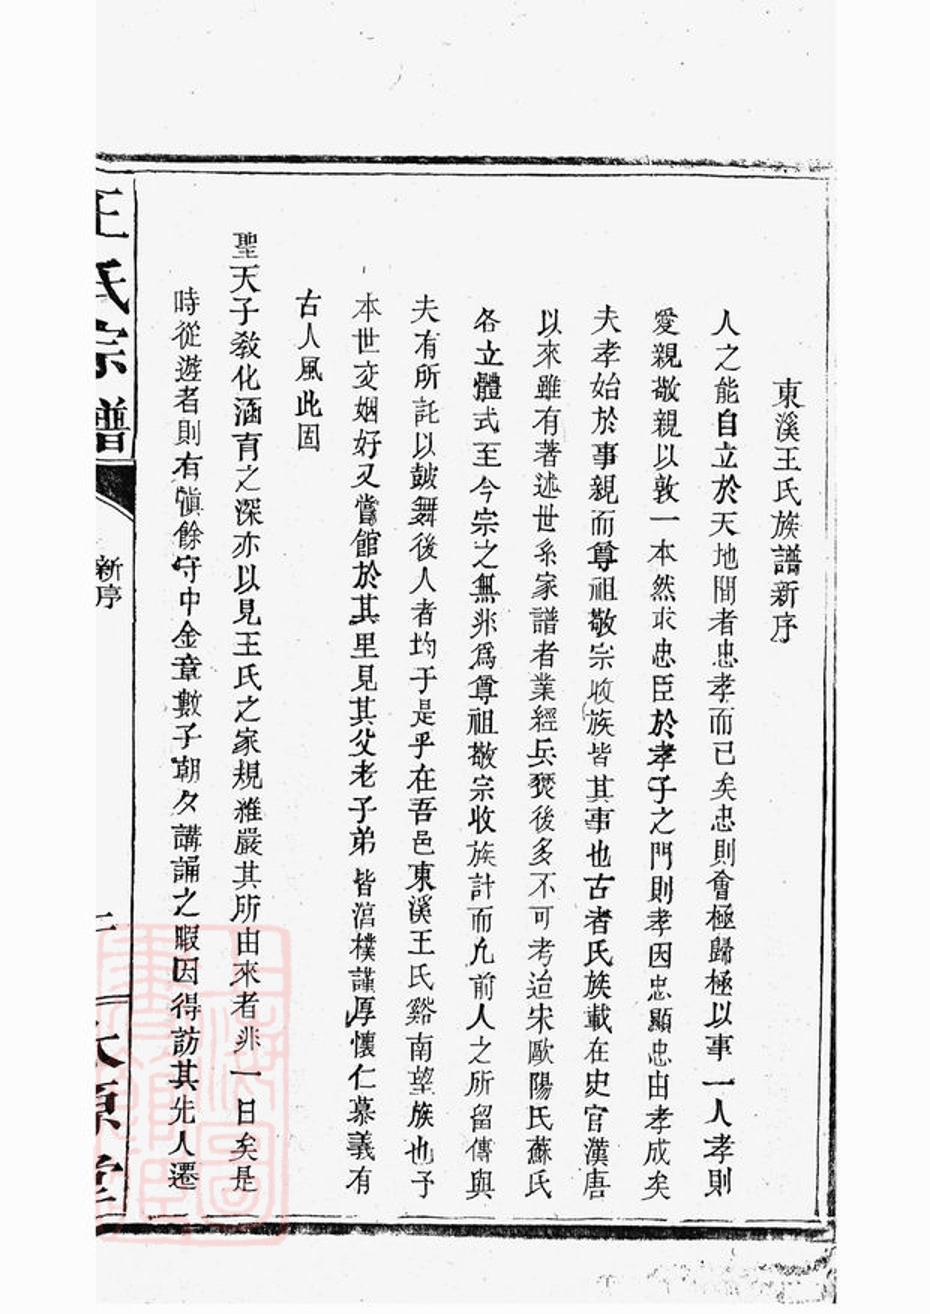 東溪王氏族譜新序
人之能自立於天地間者忠孝而已矣忠則會極歸極以事一人孝則
愛親敬親以敦一本然求忠臣於孝子之門則孝因忠顯忠由孝成矣
夫孝始於事親而尊祖敬宗收族皆其事也古者氏族載在史官漢唐
以來雖有著述世系家譜者業經兵燹後多不可考迨宋歐陽氏蘇氏
各立體式至今宗之無非為尊祖敬宗收族計而凢前人之所留傳與
夫有所託以皷舞後人者均于是乎在吾邑東溪王氏谿南望族也予
本世交姻好又嘗館於其里見其父老子弟皆湻樸謹厚懷仁慕義有
古人風此固
聖天子教化涵育之深亦以見王氏之家規雍嚴其所由來者非一日矣是
時從遊者則有慎餘守中金章數子朝夕講誦之暇因得訪其先人遷
王氏宗譜
新序
太原堂